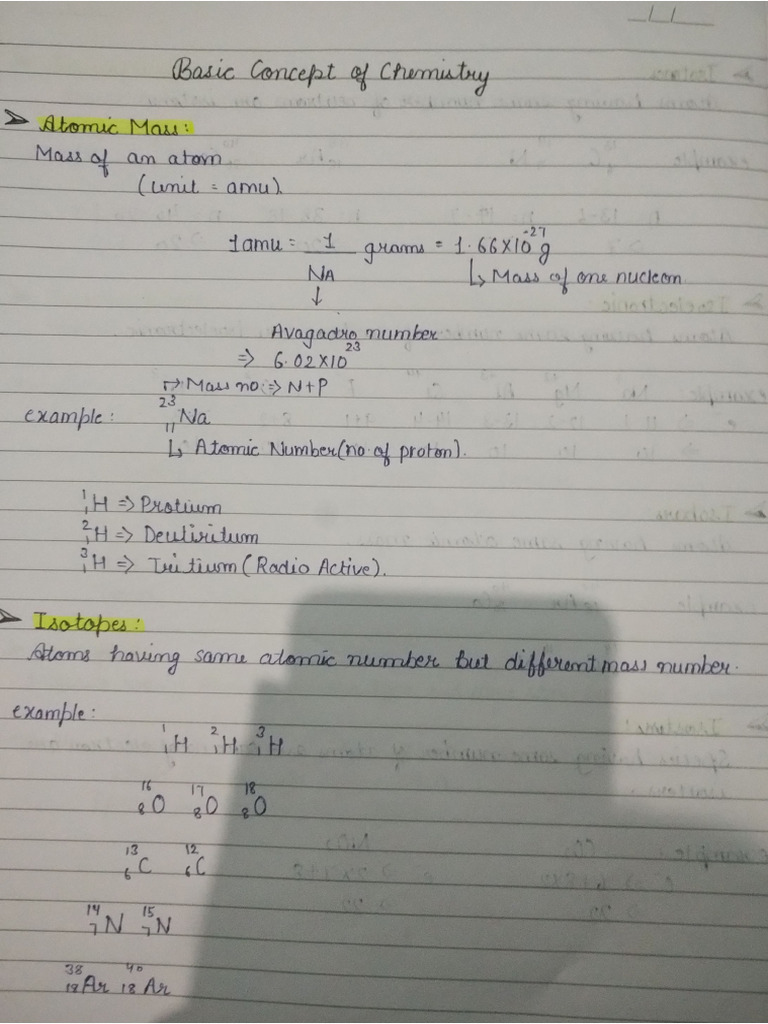 Basic Concept of Chemistry
➤ Atomic Mass:
Mass of an atom
(unit = amu).
1amu = 1/NA grams = 1.66×10⁻²⁷ g
↳ Mass of one nucleon
↓
Avagadro number
=> 6.02×10²³
↱ Mass no. => N+P
example: ²³₁₁Na
↳ Atomic Number (no. of proton).
¹₁H => Protium
²₁H => Deutiritum
³₁H => Tritium (Radio Active).
➤ Isotopes:
Atoms having same atomic number but different mass number.
example:
¹₁H ²₁H ³₁H
¹⁶₈O ¹⁷₈O ¹⁸₈O
¹³₆C ¹²₆C
¹⁴₇N ¹⁵₇N
³⁸₁₈Ar ⁴⁰₁₈Ar